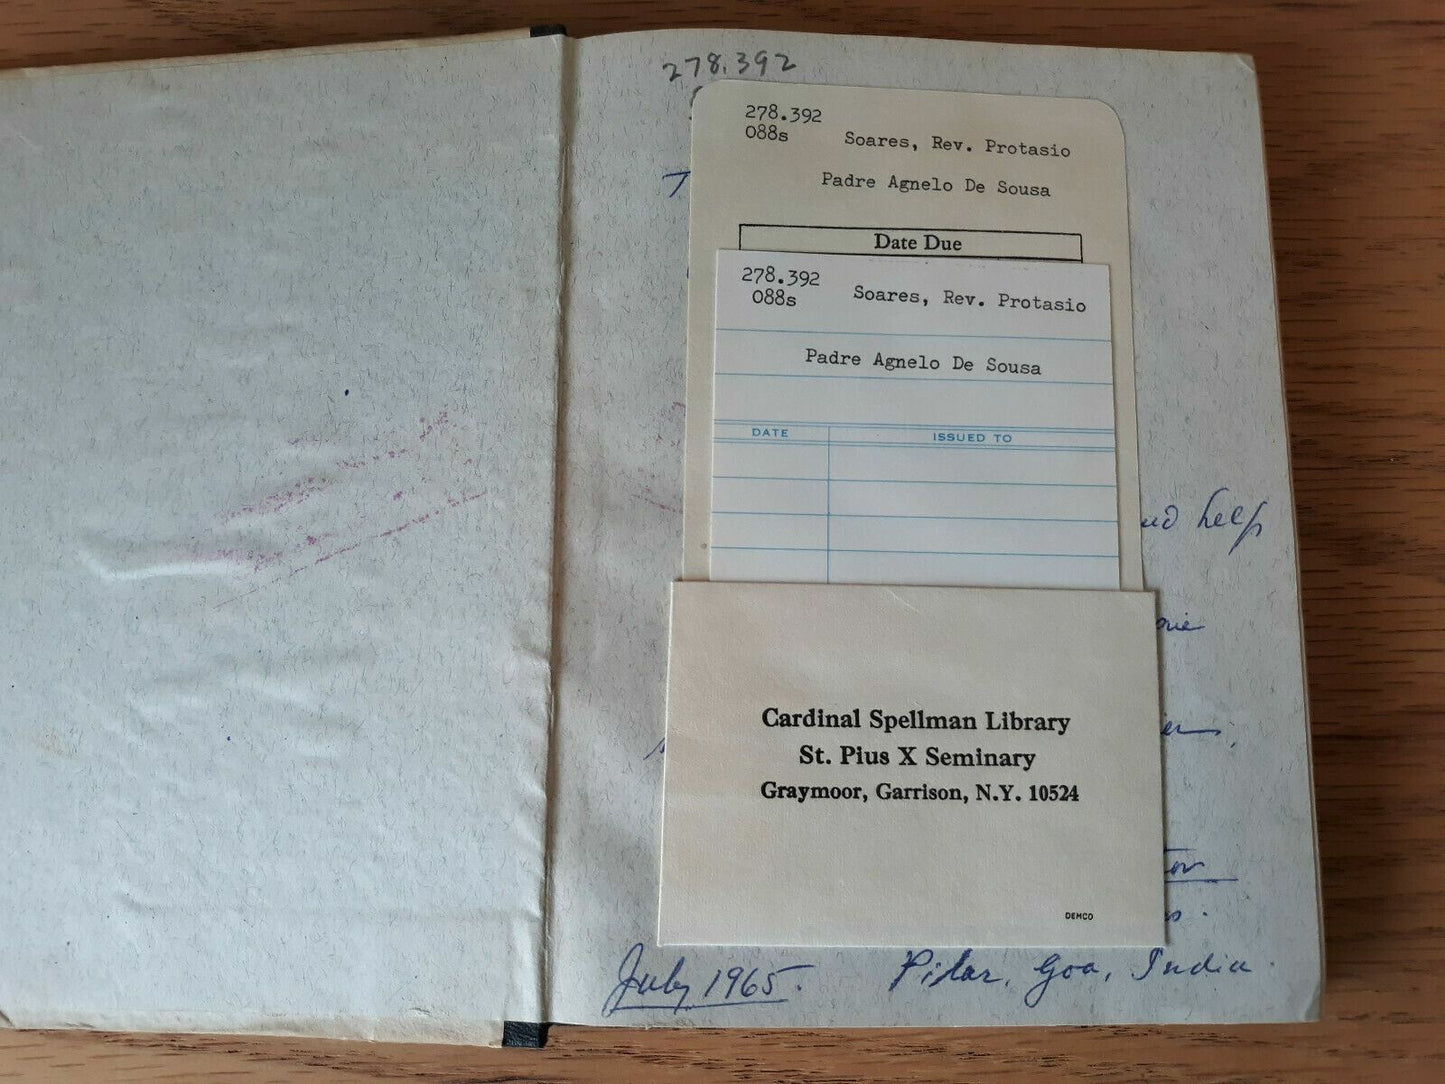 278.392
278.392
088s
Soares, Rev. Protasio
Padre Agnelo De Sousa
Date Due
278.392
088s
Soares, Rev. Protasio
Padre Agnelo De Sousa
DATE
ISSUED TO
help
Cardinal Spellman Library
St. Pius X Seminary
Graymoor, Garrison, N.Y. 10524
DEMCO
July 1965.
Pilar, Goa, India.